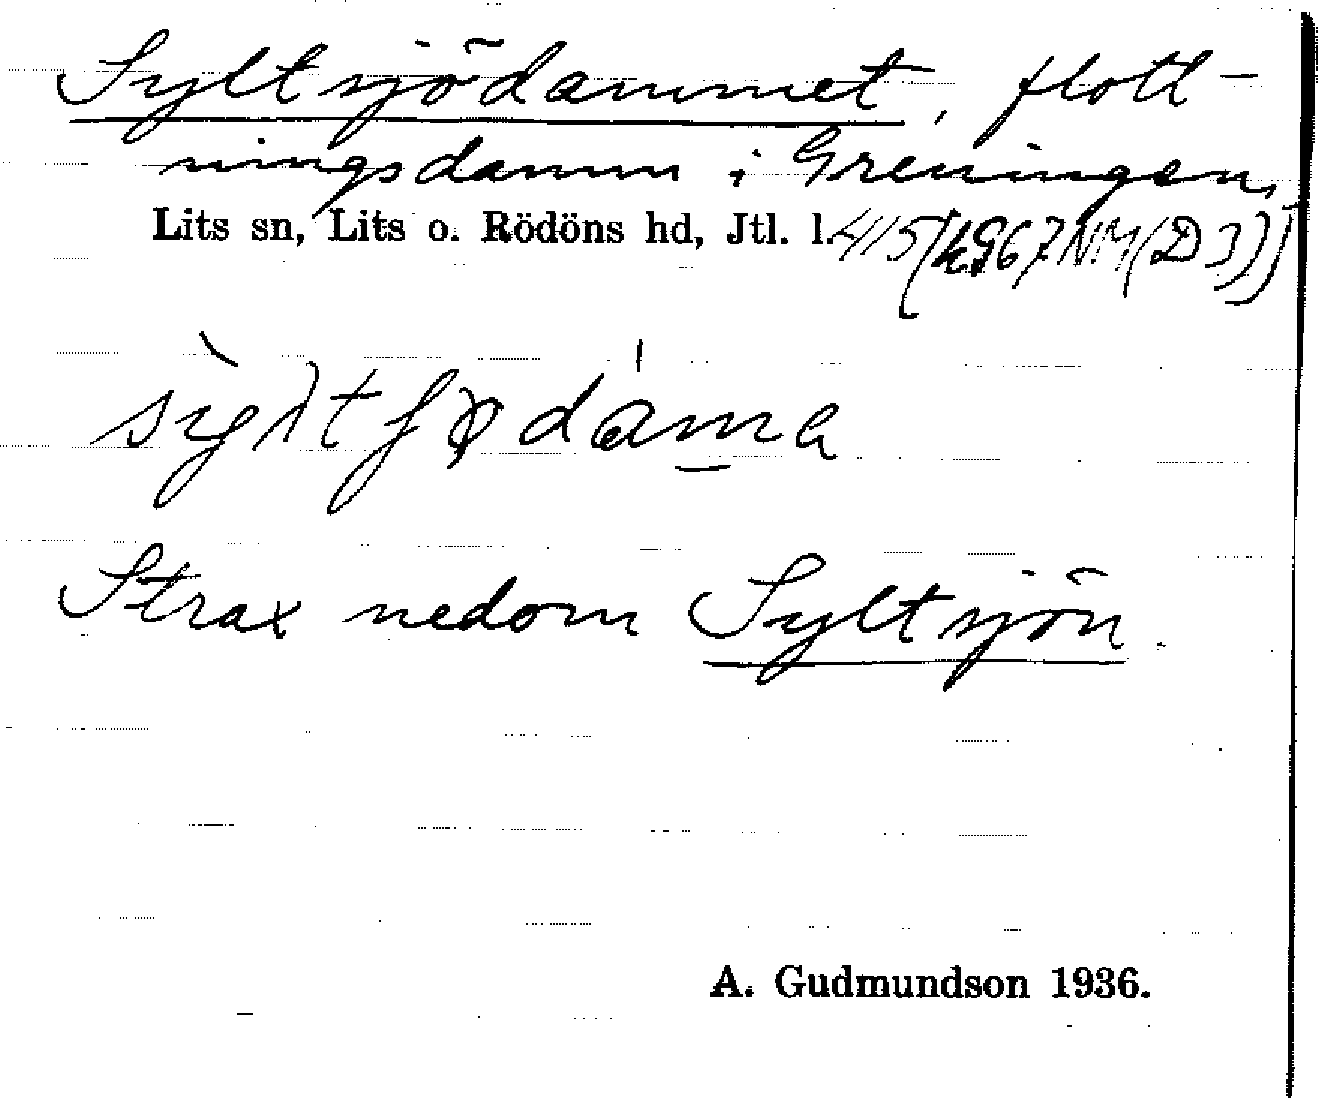 Syltsjödammet, flott-
ningsdamm i Greningen,
Lits sn, Lits o. Rödöns hd, Jtl. l.
Strax nedom Syltsjön.
A. Gudmundson 1936.